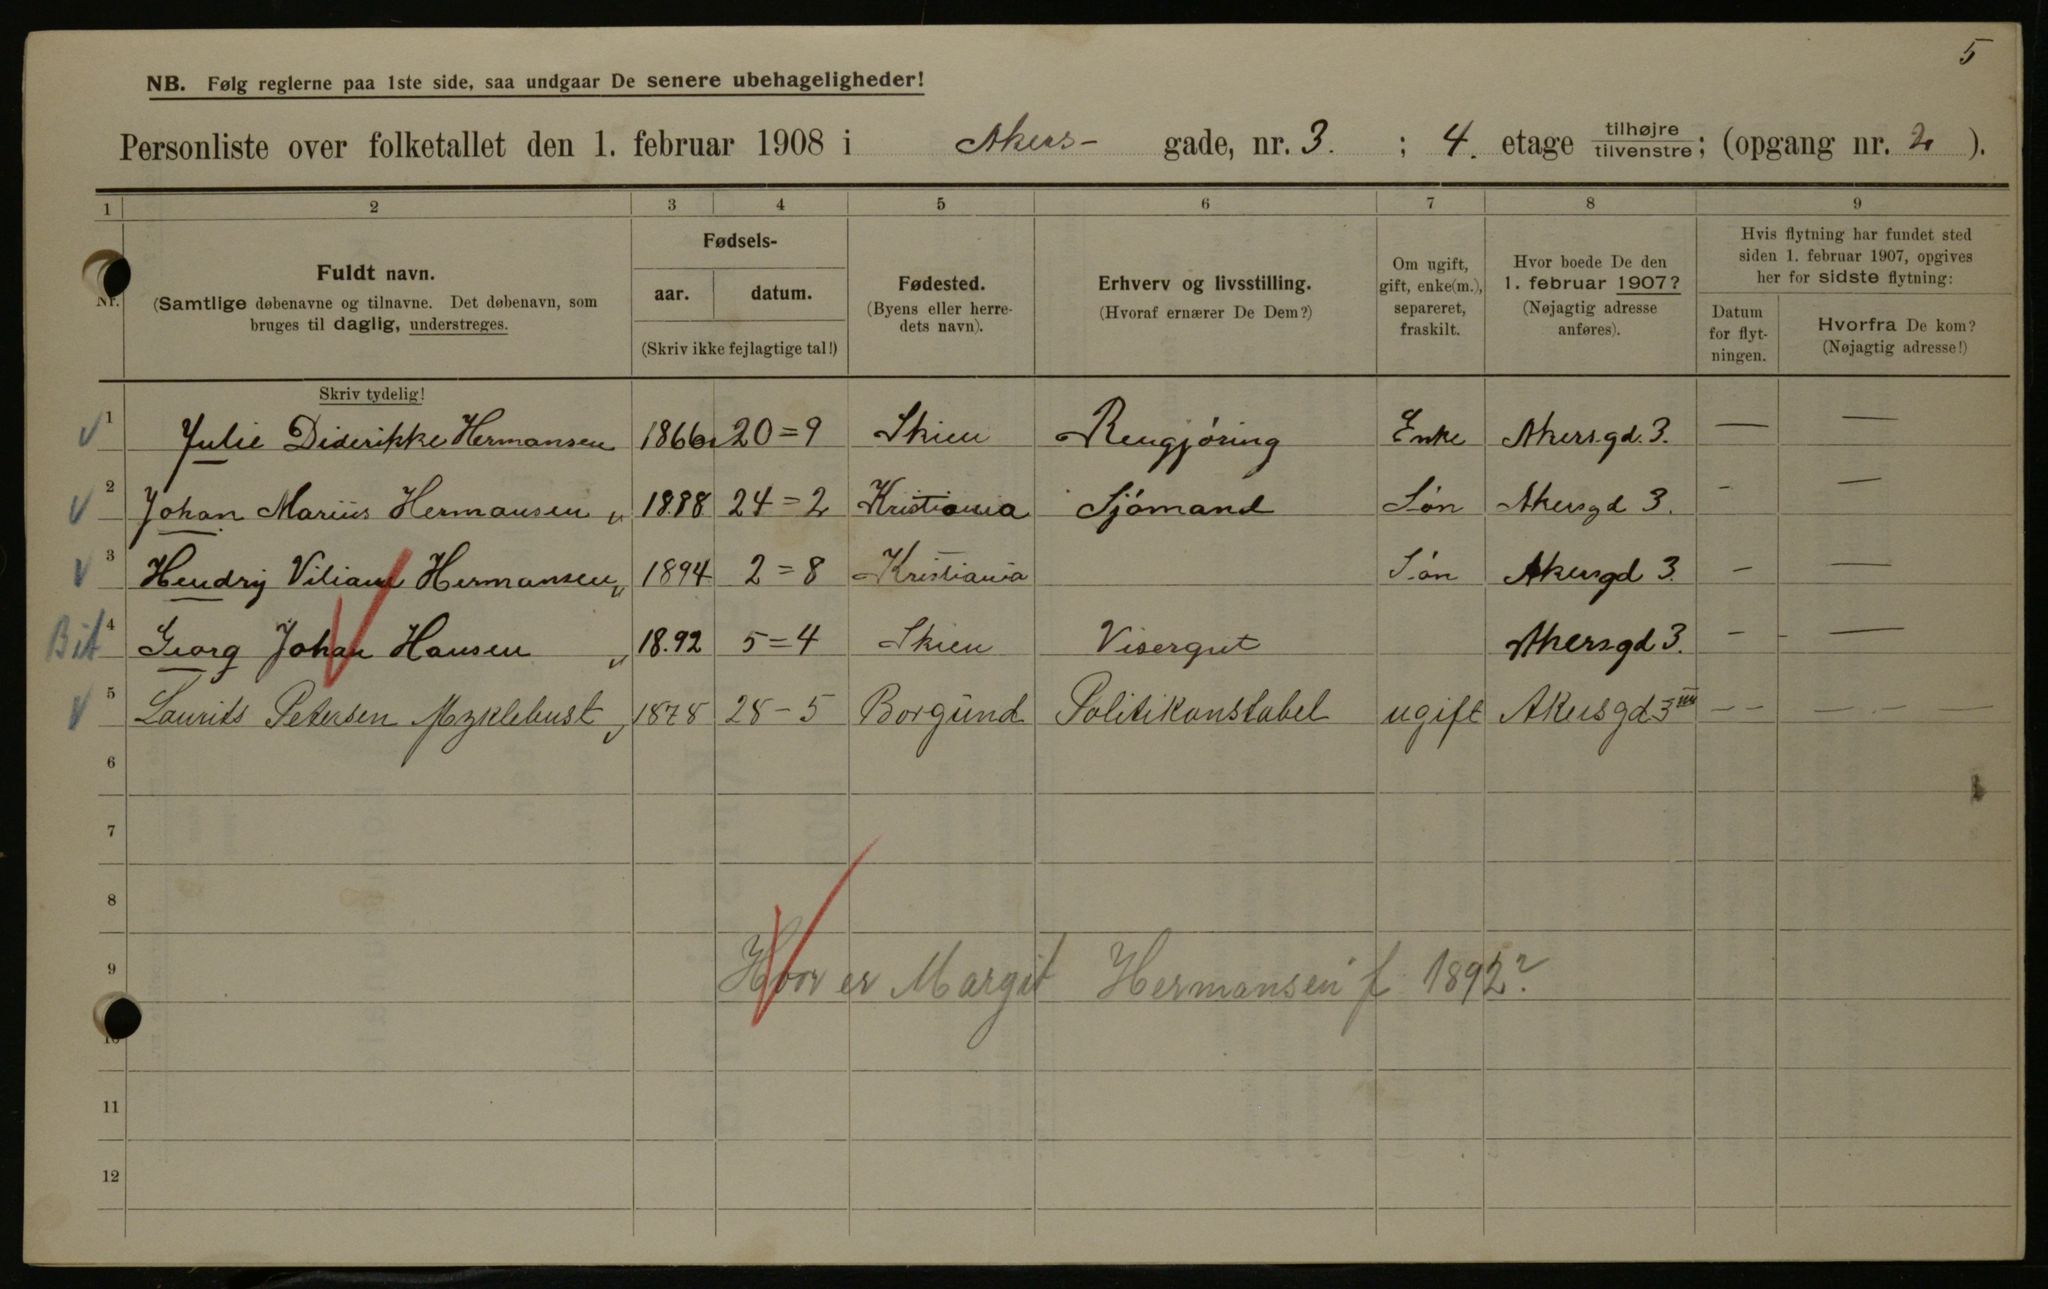 5
NB. Følg reglerne paa 1ste side, saa undgaar De senere ubehageligheder!
Personliste over folketallet den 1. februar 1908 i Akers- gade, nr. 3. ; 4. etage tilhøjre tilvenstre; (opgang nr. 2 ).
1 2 3 4 5 6 7 8 9
Nr.
Fuldt navn.
(Samtlige døbenavne og tilnavne. Det døbenavn, som
bruges til daglig, understreges.
Skriv tydelig!
Fødsels-
aar. datum.
(Skriv ikke fejlagtige tal!)
Fødested.
(Byens eller herre-
dets navn).
Erhverv og livsstilling.
(Hvoraf ernærer De Dem?)
Om ugift,
gift, enke(m.),
separeret,
fraskilt.
Hvor boede De den
1. februar 1907?
(Nøjagtig adresse
anføres).
Hvis flytning har fundet sted
siden 1. februar 1907, opgives
her for sidste flytning:
Datum
for flyt-
ningen.
Hvorfra De kom?
(Nøjagtig adresse!)
1 Julie Diderikke Hermansen 1866 20=9 Skien Rengjøring Enke Akersgd. 3. — —
2 Johan Marius Hermansen 1888 24=2 Kristiania Sjømand Søn Akersgd 3. - —
3 Hendrij Viliam Hermansen 1894 2=8 Kristiania Søn Akersgd 3. - —
Bit 4 Georg Johan Hansen 18.92 5=4 Skien Visergut Akersgd 3. - - —
5 Laurits Petersen Myklebust 1878 28-5 Borgund Politikonstabel ugift Akersgd 3 III — — — - — —
6
7
8
9 Hvor er Margit Hermansen f 1892?
10
11
12